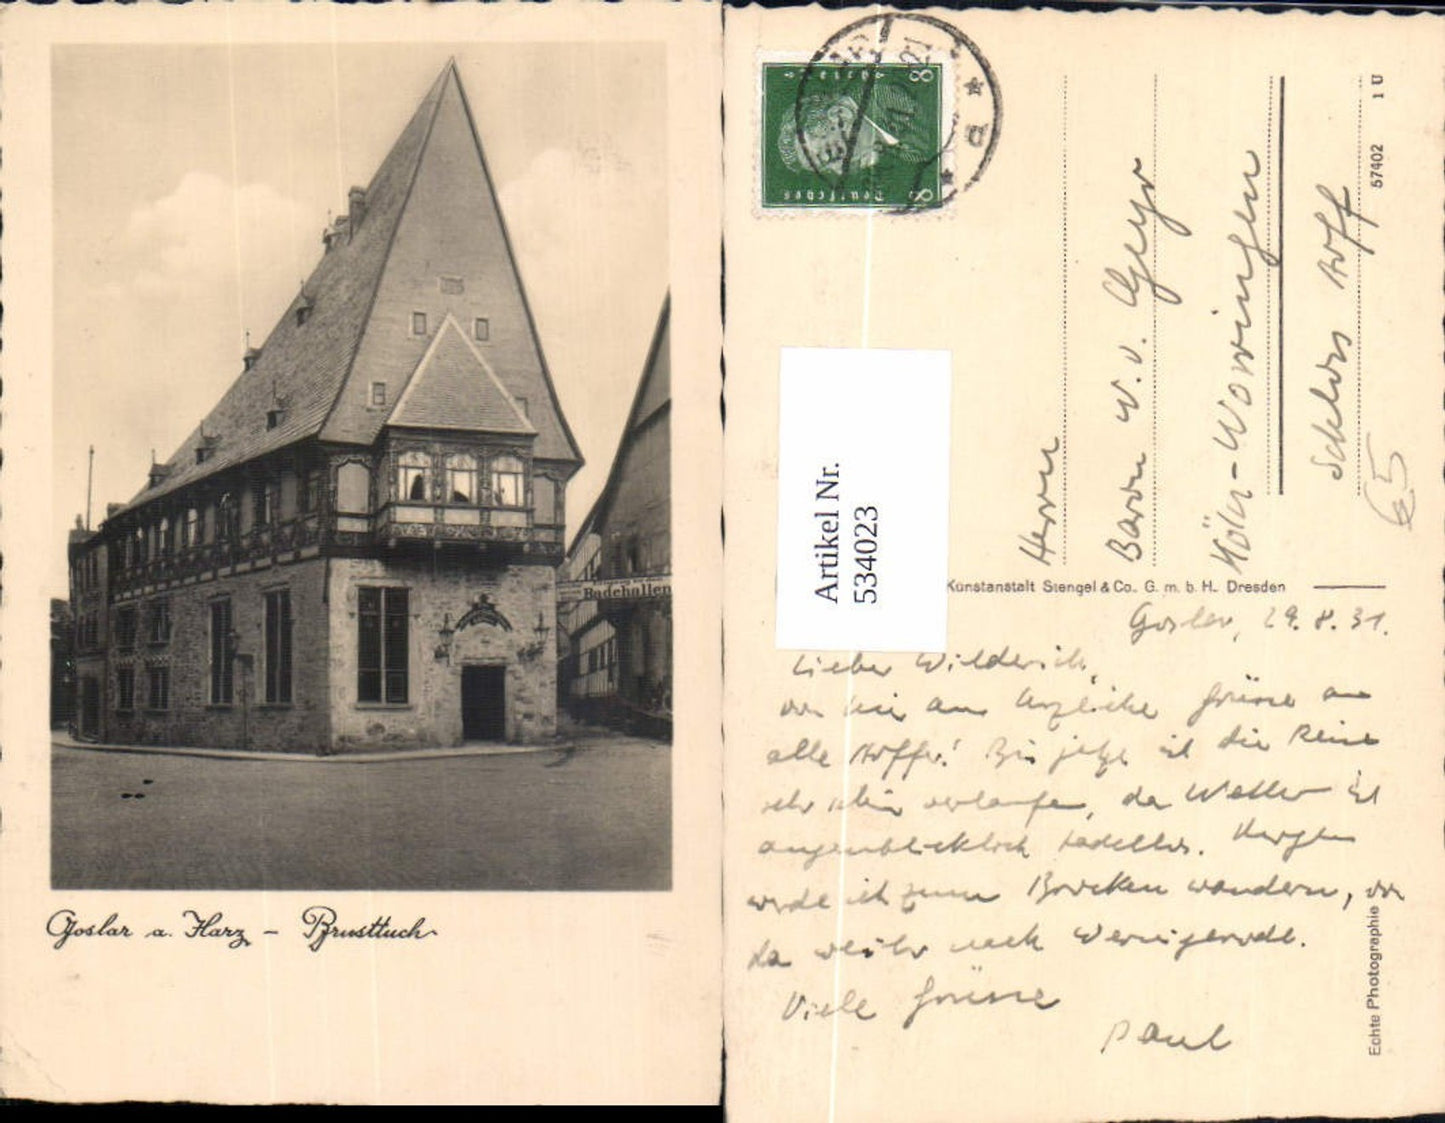 Badehallen
Goslar a. Harz – Brusttuch
8 8
Deutsches
Artikel Nr.
534023
Herrn
Baron W. v. Geyr
Köln-Worringen
Schloss Arff
65
57402 1 U
Kunstanstalt Stengel & Co. G. m. b. H. Dresden
Echte Photographie
Goslar, 29. 8. 31.
Lieber Wilderich,
von hier aus herzliche Grüsse an
alle Arffer! Bis jetzt ist die Reise
sehr schön verlaufen, da Wetter ist
augenblicklich tadellos. Morgen
werde ich zum Brocken wandern, von
da weiter nach Wernigerode.
Viele Grüsse
Paul